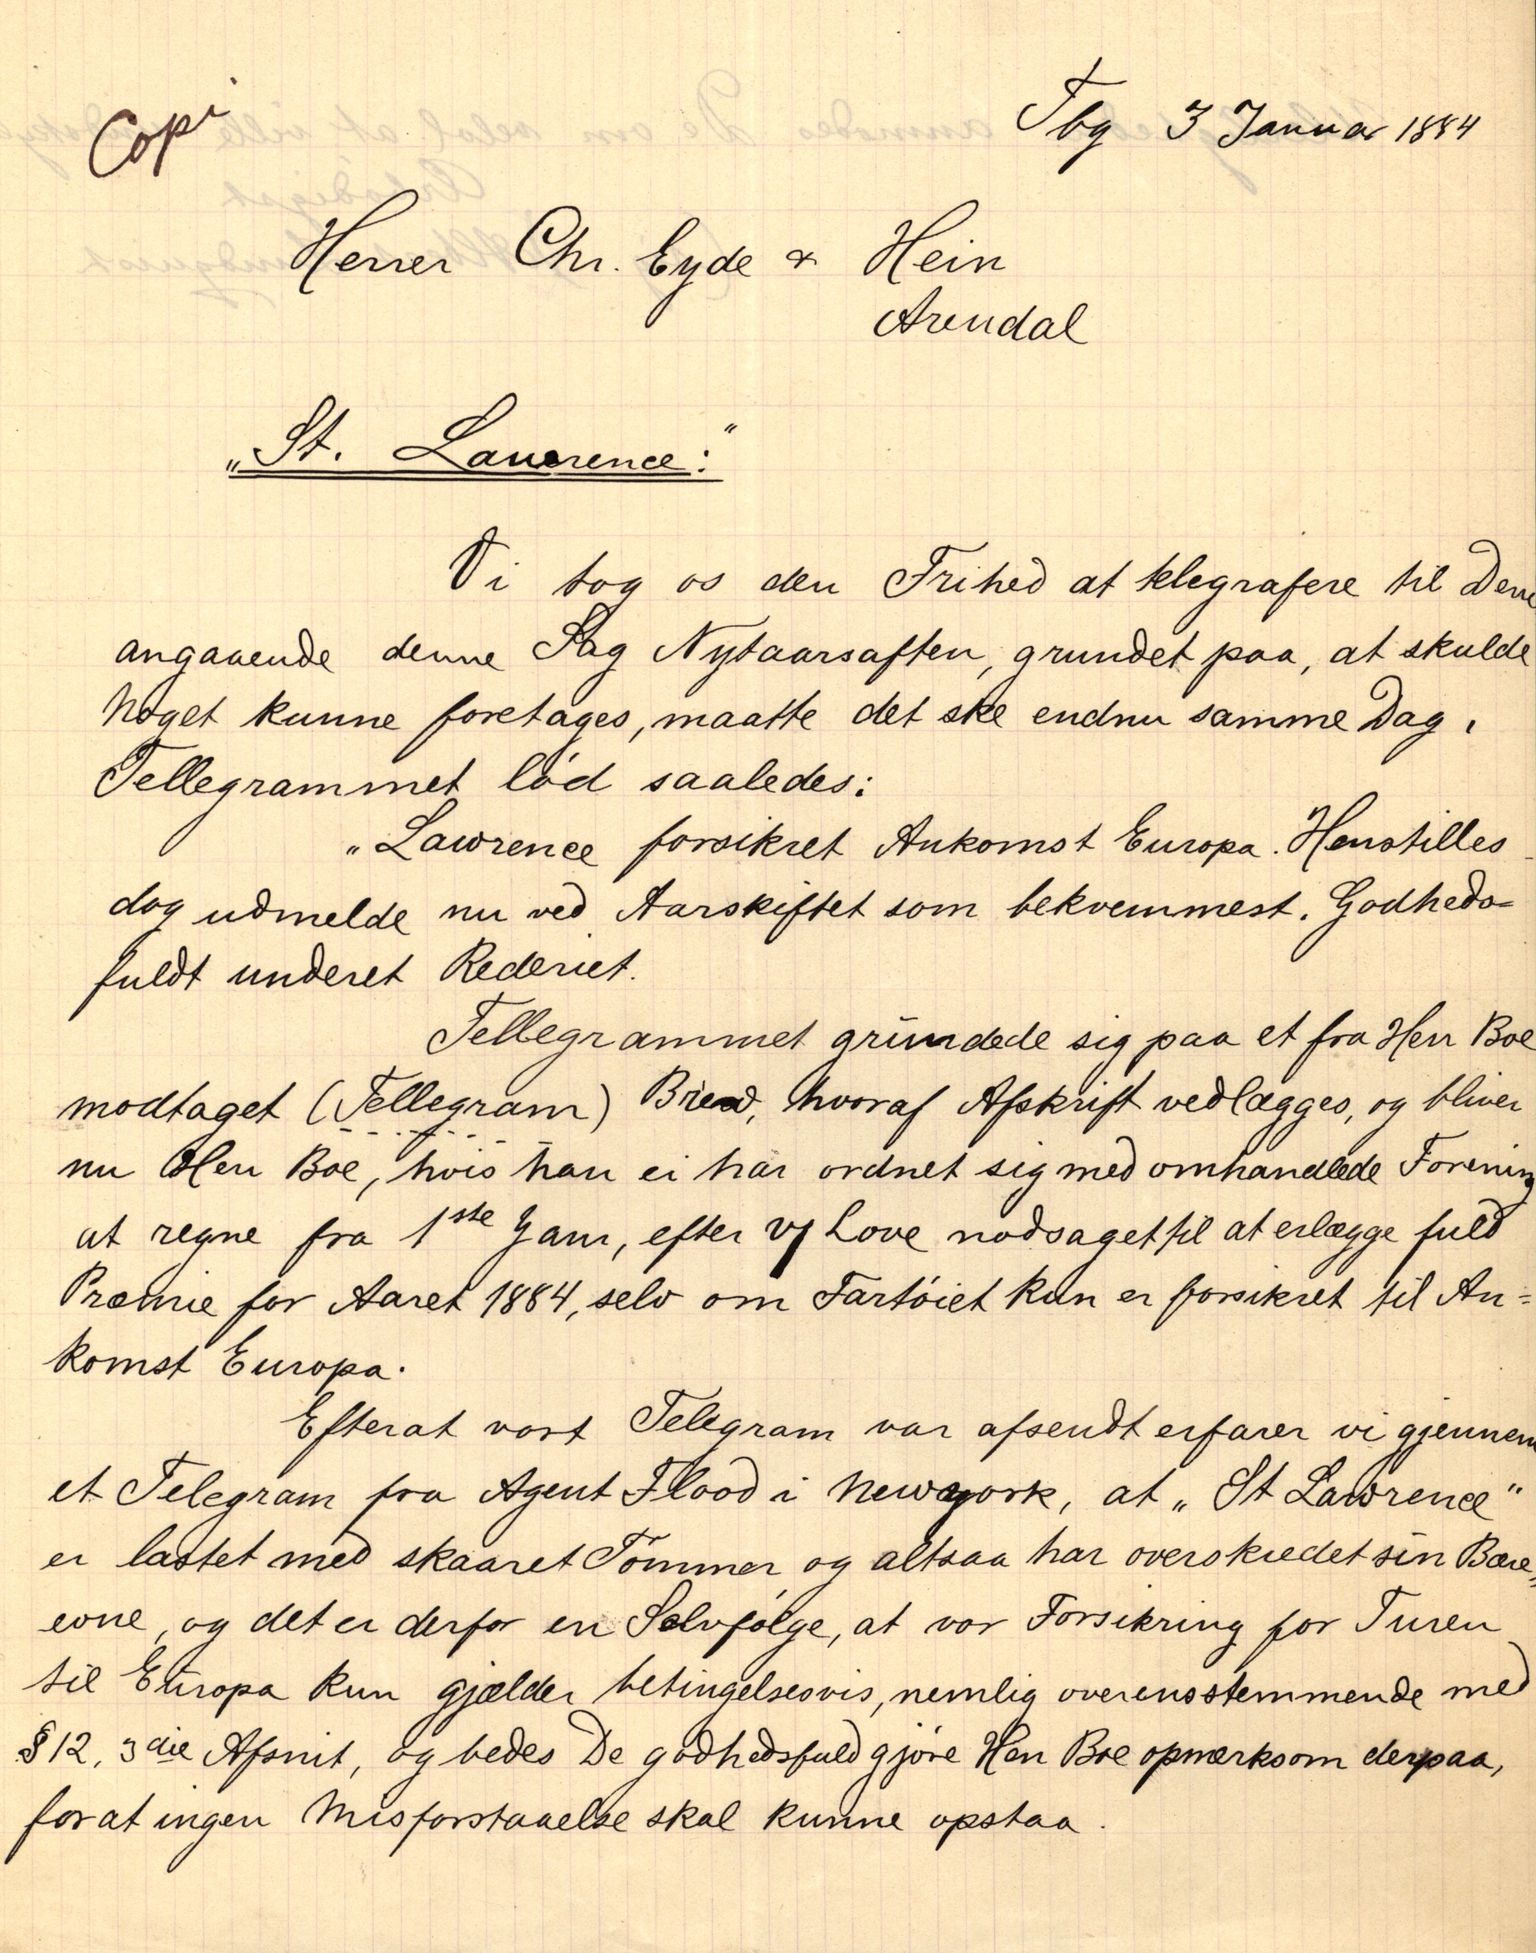 Copi
Tbg 3 Januar 1884
Herrer Chr. Eyde & Hein
Arendal
„St. Lawrence:"
Vi tog os den Frihed at telegrafere til Dem
angaaende denne Sag Nytaarsaften, grundet paa, at skulde
Noget kunne foretages, maatte det ske endnu samme Dag.
Tellegrammet lød saaledes:
„Lawrence forsikret Ankomst Europa. Henstilles
dog udmelde nu ved Aarskiftet som bekvemmest. Godheds=
fuldt underet Rederiet.
Tellegrammet grundede sig paa et fra Herr Boe
modtaget (Tellegram) Brev, hvoraf Afskrift vedlægges, og bliver
nu Herr Boe, hvis han ei har ordnet sig med omhandlede Forening
at regne fra 1ste Janr, efter v/ Love nødsaget til at erlægge fuld
Præmie for Aaret 1884, selv om Fartøiet kun er forsikret til An=
komst Europa.
Efterat vort Telegram var afsendt erfarer vi gjennem
et Telegram fra Agent Flood i Newyork, at „St Lawrence"
er lastet med skaaret Tømmer og altsaa har overskredet sin Bære„
evne, og det er derfor en Selvfølge, at vor Forsikring for Turen
til Europa kun gjælder betingelsesvis, nemlig overensstemmende med
§ 12, 3die Afsnit, og bedes De godhedsfuld gjøre Herr Boe opmærksom derpaa,
forat ingen Misforstaaelse skal kunne opstaa.